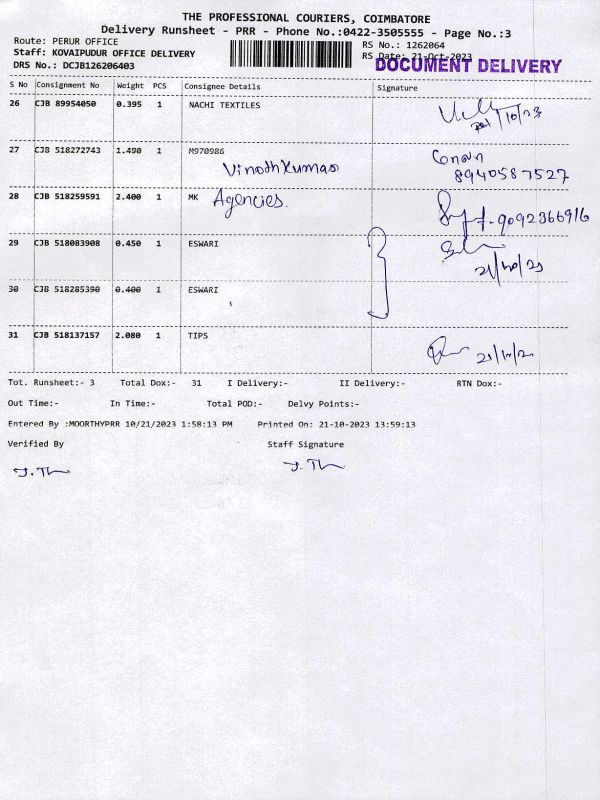 THE PROFESSIONAL COURIERS, COIMBATORE
Delivery Runsheet - PRR - Phone No.:0422-3505555 - Page No.:3
Route: PERUR OFFICE
Staff: KOVAIPUDUR OFFICE DELIVERY
DRS No.: DCJB126206403
RS No.: 1262064
RS Date: 21-Oct-2023
DOCUMENT DELIVERY
S No Consignment No Weight PCS Consignee Details Signature
26 CJB 89954050 0.395 1 NACHI TEXTILES
27 CJB 518272743 1.490 1 M970986
Vinothkumar
8940587527
28 CJB 518259591 2.400 1 MK Agencies. 9092366916
29 CJB 518083908 0.450 1 ESWARI
21/10/23
30 CJB 518285390 0.400 1 ESWARI
31 CJB 518137157 2.080 1 TIPS
Tot. Runsheet:- 3 Total Dox:- 31 I Delivery:- II Delivery:- RTN Dox:-
Out Time:- In Time:- Total POD:- Delvy Points:-
Entered By :MOORTHYPRR 10/21/2023 1:58:13 PM Printed On: 21-10-2023 13:59:13
Verified By Staff Signature